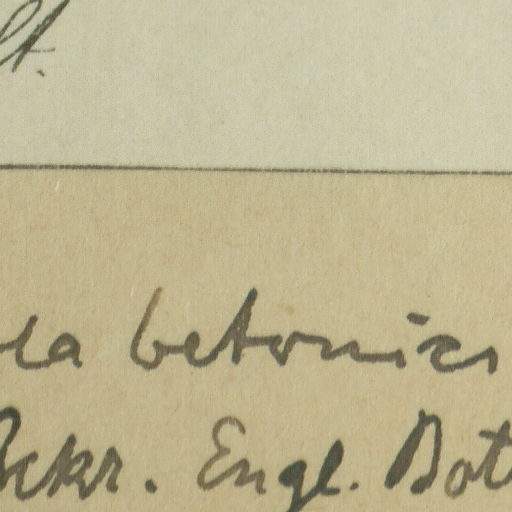 lt.
la betonic
Bckr. Engl. Bot